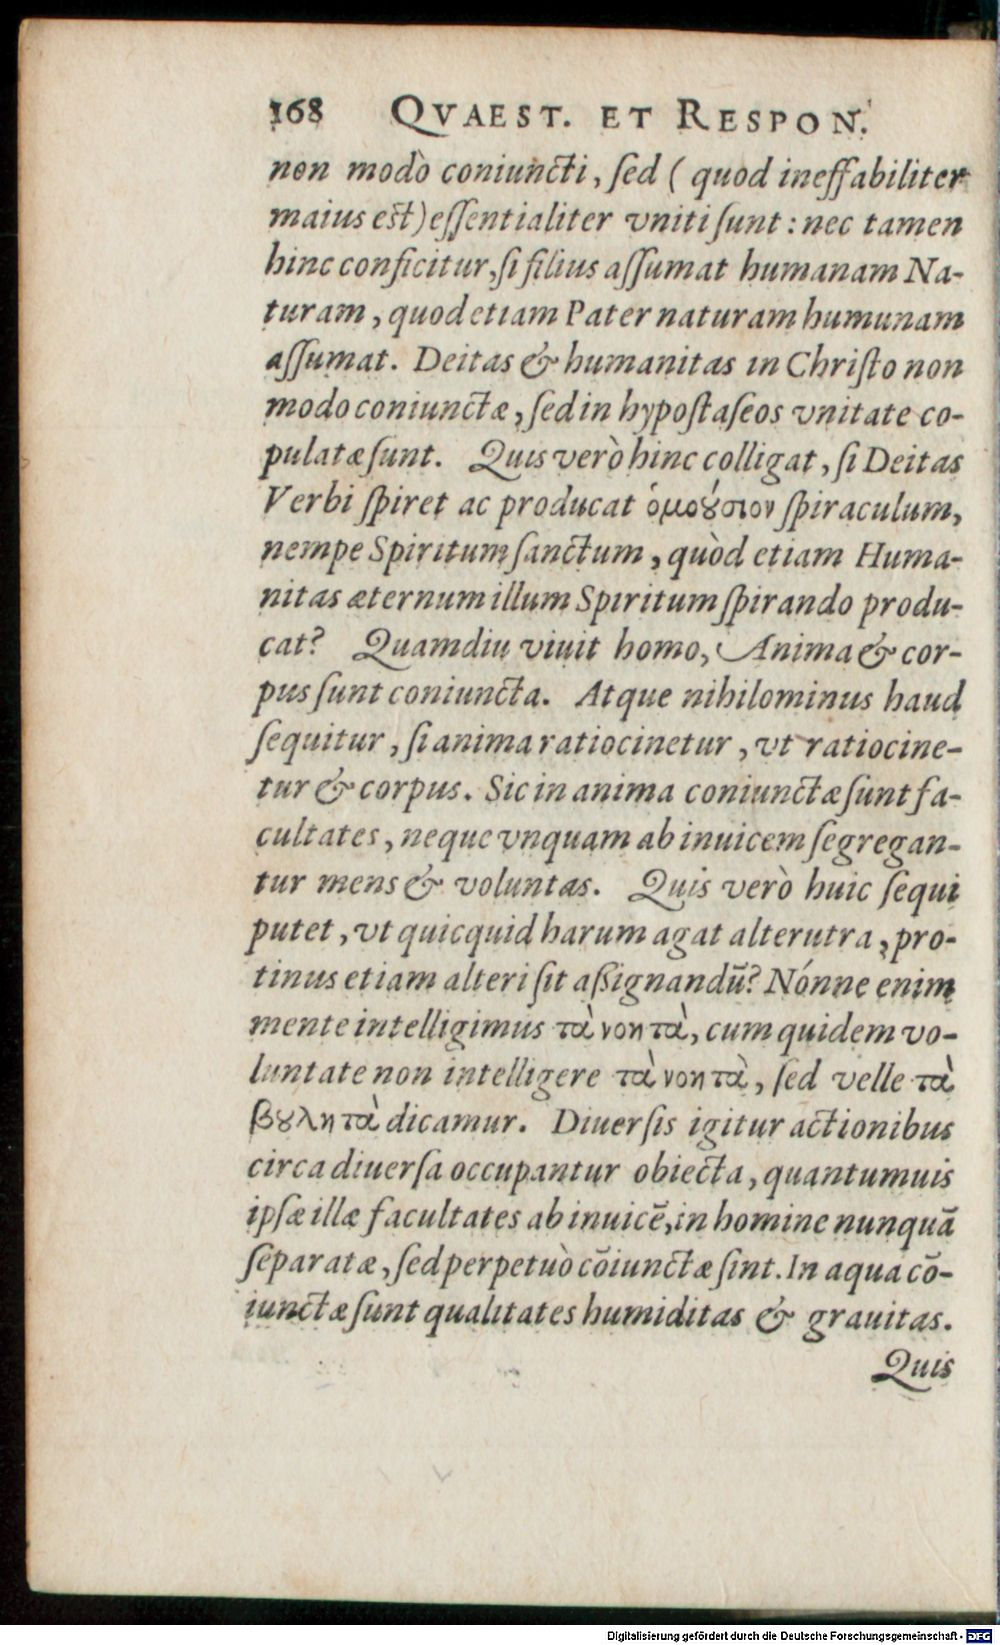 168 QVAEST. ET RESPON.
non modò coniuncti, ſed ( quod ineffabiliter
maius est) eſſentialiter vniti ſunt: nec tamen
hinc conficitur, ſi filius aſſumat humanam Na-
turam, quod etiam Pater naturam humunam
aſſumat. Deitas & humanitas in Chriſto non
modo coniunctæ, ſed in hypoſtaſeos vnitate co-
pulatæ ſunt. Quis verò hinc colligat, ſi Deitas
Verbi ſpiret ac producat ὁμοȣ́σιον ſpiraculum,
nempe Spiritum ſanctum, quòd etiam Huma-
nitas æternum illum Spiritum ſpirando produ-
cat? Quamdiu viuit homo, Anima & cor-
pus ſunt coniuncta. Atque nihilominus haud
ſequitur, ſi anima ratiocinetur, vt ratiocine-
tur & corpus. Sic in anima coniunctæ ſunt fa-
cultates, neque vnquam ab inuicem ſegregan-
tur mens & voluntas. Quis verò huic ſequi
putet, vt quicquid harum agat alterutra, pro-
tinus etiam alteri ſit aßignandū? Nónne enim
mente intelligimus τὰ νοητὰ, cum quidem vo-
luntate non intelligere τὰ νοητὰ, ſed velle τὰ
βȣλητὰ dicamur. Diuerſis igitur actionibus
circa diuerſa occupantur obiecta, quantumuis
ipſæ illæ facultates ab inuicē, in homine nunquā
ſeparatæ, ſed perpetuò cōiunctæ ſint. In aqua cō-
iunctæ ſunt qualitates humiditas & grauitas.
Quis
Digitalisierung gefördert durch die Deutsche Forschungsgemeinschaft - DFG